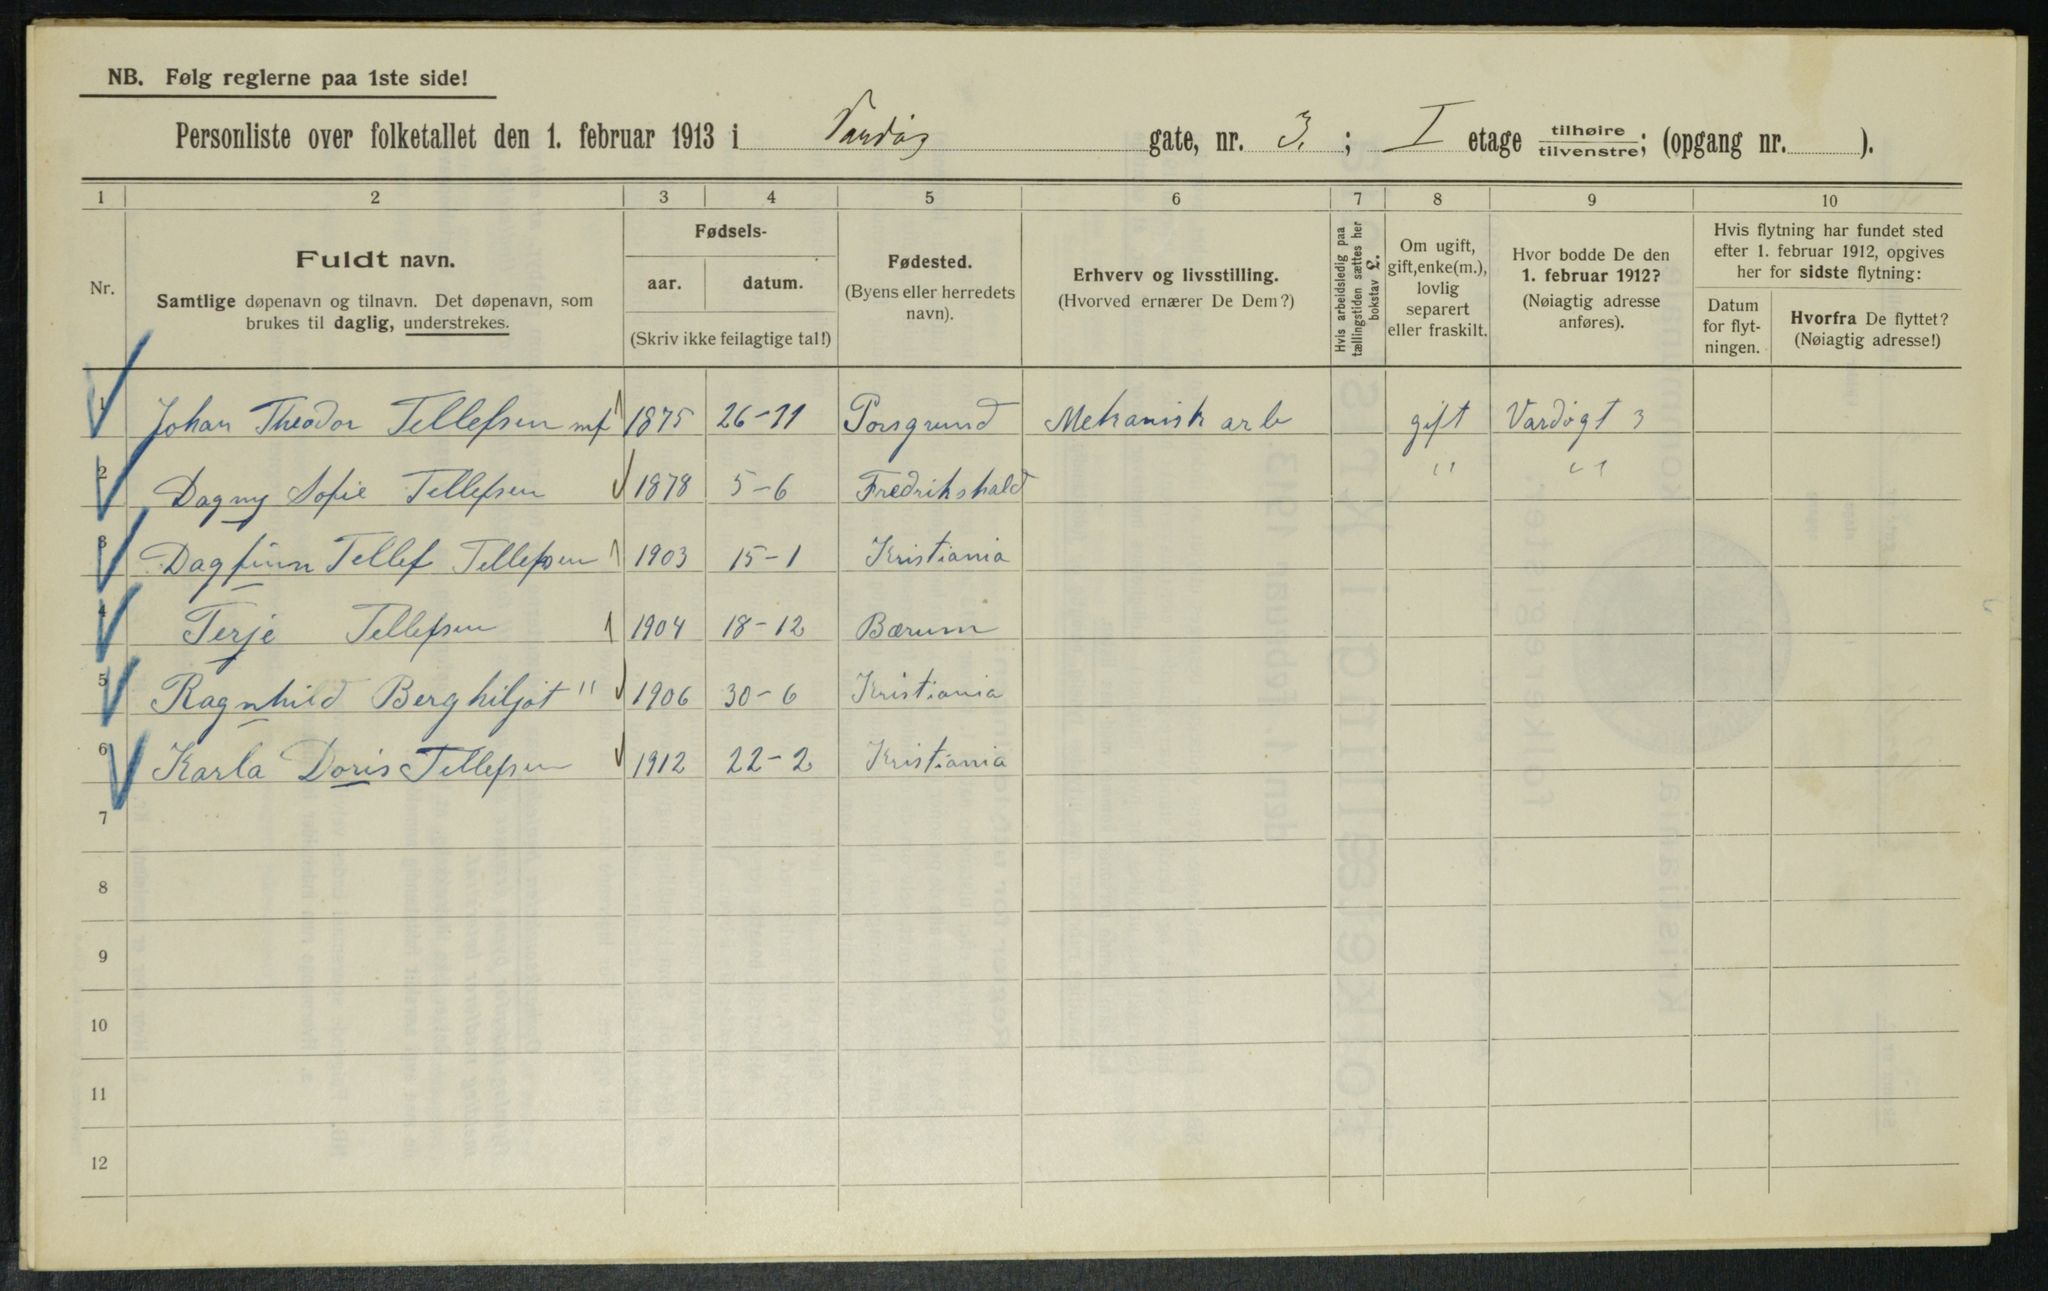 NB. Følg reglerne paa 1ste side!
Personliste over folketallet den 1. februar 1913 i Vardøg gate, nr. 3. ; I etage tilhøire / tilvenstre; (opgang nr. ).
1 2 3 4 5 6 7 8 9 10
Nr.
Fuldt navn.
Samtlige døpenavn og tilnavn. Det døpenavn, som
brukes til daglig, understrekes.
Fødsels-
aar. datum.
(Skriv ikke feilagtige tal!)
Fødested.
(Byens eller herredets
navn).
Erhverv og livsstilling.
(Hvorved ernærer De Dem?)
Hvis arbeidsledig paa
tællingstiden sættes her
bokstav L.
Om ugift,
gift, enke(m.),
lovlig
separert
eller fraskilt.
Hvor bodde De den
1. februar 1912?
(Nøiagtig adresse
anføres).
Hvis flytning har fundet sted
efter 1. februar 1912, opgives
her for sidste flytning:
Datum
for flyt-
ningen.
Hvorfra De flyttet?
(Nøiagtig adresse!)
1 Johan Theodor Tellefsen mf 1875 26-11 Porsgrund Mekanisk arb gift Vardøgt 3
2 Dagny Sofie Tellefsen 1878 5-6 Fredrikshald " "
3 Dagfinn Tellef Tellefsen 1903 15-1 Kristiania
4 Terje Tellefsen 1904 18-12 Bærum
5 Ragnhild Berghiljot " 1906 30-6 Kristiania
6 Karla Doris Tellefsen 1912 22-2 Kristiania
7
8
9
10
11
12